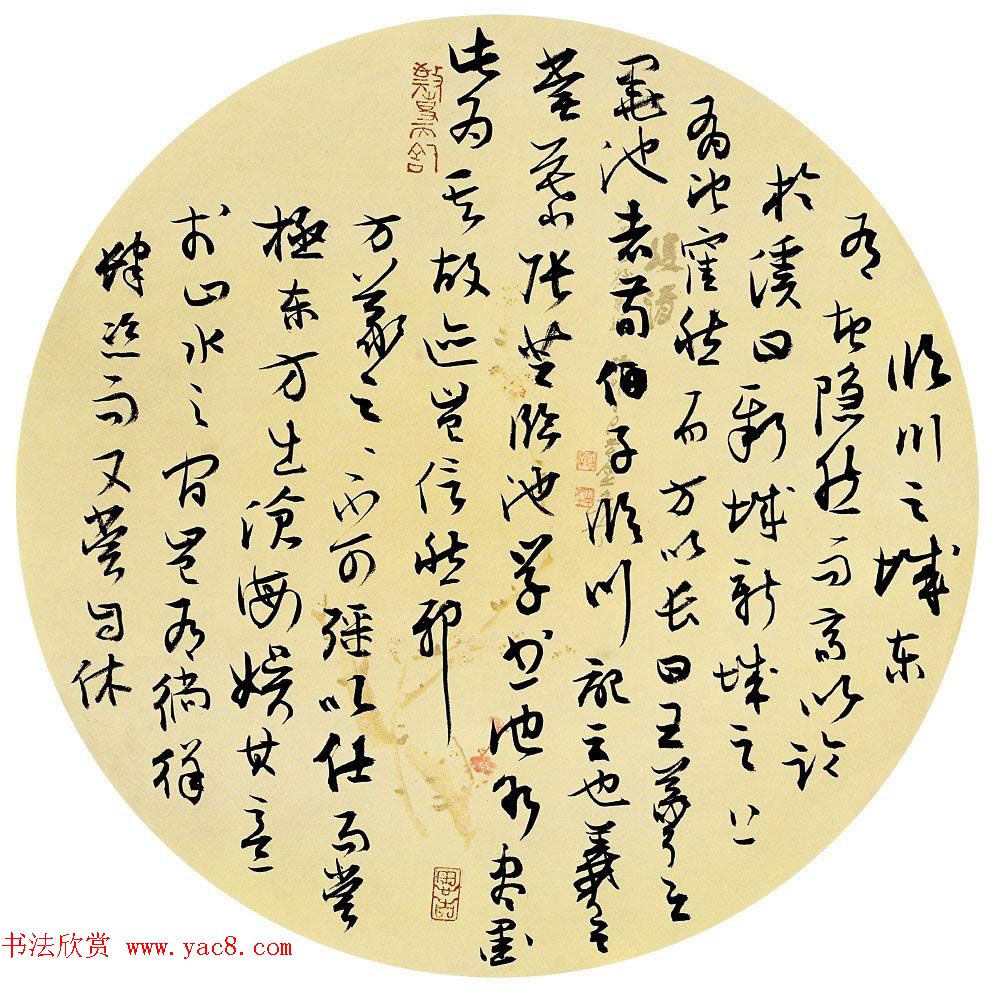 临川之城东
有地隐然而高以临
於溪曰新城新城之上
有池窪然而方以长曰王羲之
墨池者荀伯子临川记云也羲之
尝慕张芝临池学书池水尽黑
此为其故迹岂信然邪
方羲之之不可强以仕而尝
极东方出沧海娱其意
於山水之间岂有徜徉
肆恣而又尝自休
书法欣赏 www.yac8.com